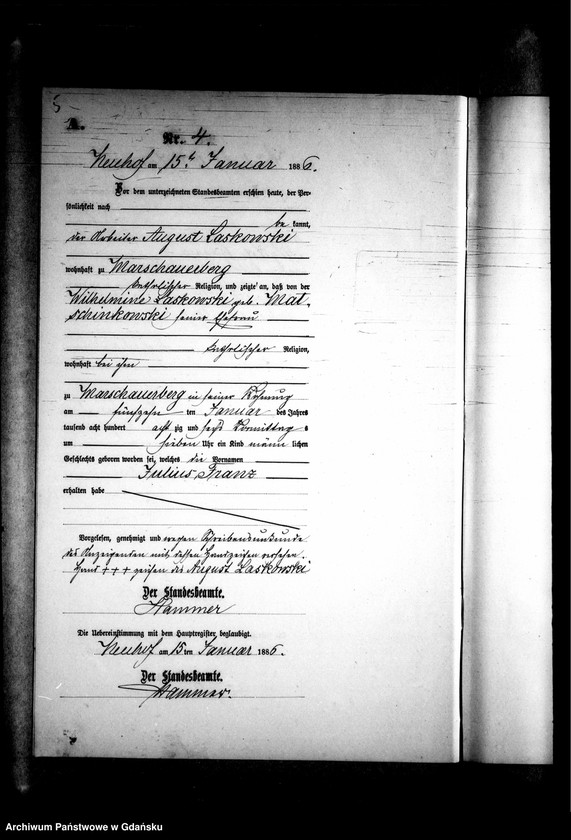 5
A.
Nr. 4.
Neuhof am 15t Januar 1886.
Vor dem unterzeichneten Standesbeamten erschien heute, der Per-
sönlichkeit nach
be kannt,
der Arbeiter August Laskowski
wohnhaft zu Marschauerberg
katholischer Religion, und zeigte an, daß von der
Wilhelmine Laskowski geb. Mat-
schinkowski seiner Ehefrau
katholischer Religion,
wohnhaft bei ihm
zu Marschauerberg in seiner Wohnung
am fünfzehn ten Januar des Jahres
tausend acht hundert acht zig und sechs Vormittag s
um sieben Uhr ein Kind männ lichen
Geschlechts geboren worden sei, welches die Vornamen
Julius Franz
erhalten habe
Vorgelesen, genehmigt und wegen Schreibensunkunde
des Anzeigenden mit dessen Handzeichen versehen.
Hand +++ zeichen des August Laskowski
Der Standesbeamte.
Hammer
Die Uebereinstimmung mit dem Hauptregister beglaubigt.
Neuhof am 15 ten Januar 1886.
Der Standesbeamte.
Hammer.
Archiwum Państwowe w Gdańsku